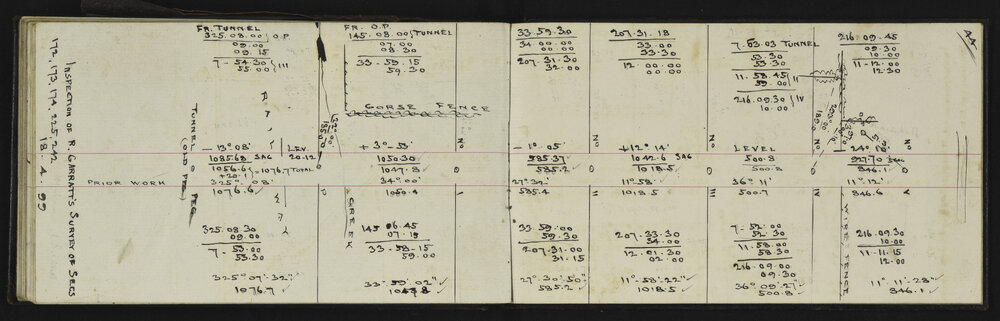 INSPECTION OF R. GARRATT'S SURVEY OF SECS
172, 173, 174, 225, 242
18. 4. 99
PRIOR WORK
TUNNEL
(OOD PEG)
FR. TUNNEL
325.08.00 O.P
09.00
09.15
7 - 54.30
55.00
III
- 13° 08'
1085.68 SAG
LEV.
20.12
1056.6
+20.1
= 1076.7 TOTAL
325° 08'
1076.6
325.08.30
09.00
7 - 53.00
53.30
325° 07' 32"
1076.7
FR. O.P.
145.08.00 TUNNEL
07.00
08.30
33 - 59.15
59.30
GORSE FENCE
+ 3° 53'
1050.30
1047.8
34° 00'
1050.4
CREEK
145 06.45
07.15
33 - 58 - 15
59.00
33° 59' 02"
No
O
I
33.59.30
34.00.00
00.00
207.31.30
32.00
- 1° 05'
585.37
585.2
27° 32'
585.4
33.59.00
59.30
207.31.00
31.15
27° 30' 50"
585.2
No
O
II
207.31.18
33.00
33.30
12.00.00
00.00
+ 12° 14'
1042.6 SAG
1018.5
11° 58'
1018.5
207.33.30
34.00
12.01.30
02.00
11° 58' 22"
1018.5
No
O
III
7.53.03 TUNNEL
53.30
53.30
11 - 58.45
59.00
II
216.09.30
10.00
IV
LEVEL
500.8
500.8
36° 11'
500.7
7 - 52.00
52.30
11 - 58.00
58.30
216.09.00
09.30
36° 09' 27"
500.8
No
O
IV
WIRE FENCE
44
216.09.45
09.30
10.00
11 - 12.00
12.30
No
24° 10'
927.70
O
11° 12'
846.6
V
216.09.30
10.00
11 - 11.15
12.00
11° 11' 28"
846.1